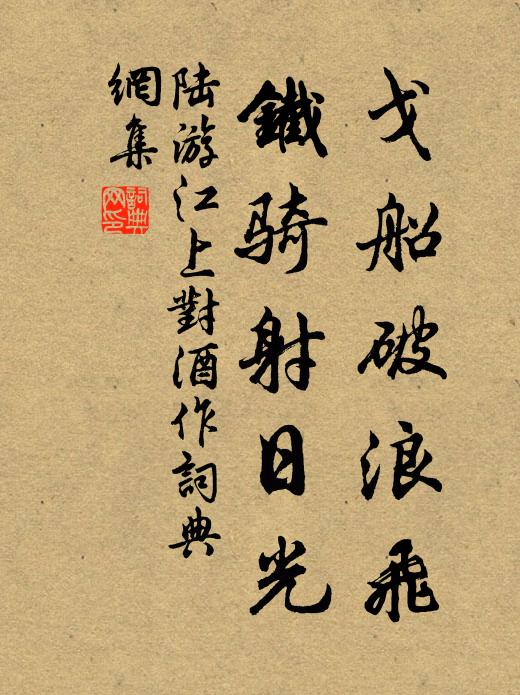 戈船破浪飛
鐵騎射日光
陆游江上對酒作詞典
網集
詞典
网印